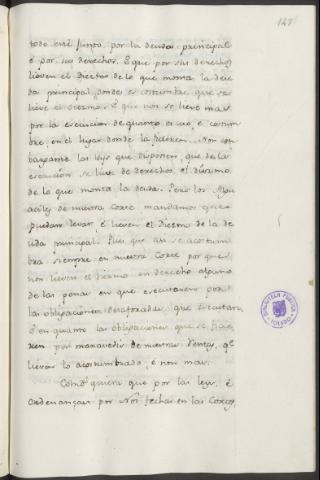 148
todo esté junto, por la deuda principal
é por sus derechos. É que por sus derechos
lieven el Diezmo de lo que monta la deu
da principal, donde es costumbre que se
lieve el diezmo. É que non se lieve mas
por la esecucion de quanto es uso, é costum
bre, en el lugar donde la ficieren. Non em
bargante las leys que disponen, que de la
esecución se lieve de derechos el diezmo
de lo que monta la deuda. Pero los Algu
aciles de nuestra Corte mandamos que
puedan levar é lieven el Diezmo de la de
uda principal: Pues que asi se acostum
bra siempre en nuestra Corte por que
non lieven el Diezmo, en derecho alguno
de las penas en que esecutaren por
las obligaciones desaforadas, que esecutaren
é en quanto las obligaciones que se ficie
ren por maravedis de nuestras Rentas, qe
lieven lo acostumbrado, é non mas.
Como quiera que por las leys, é
ordenanzas por Nos fechas en las Cortes,
BIBLIOTECA PUBLICA
TOLEDO